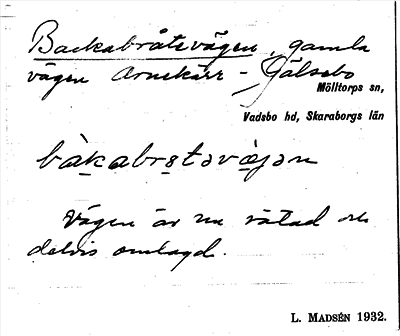 Backabråtsvägen, gamla
vägen Arnekärr - Gälsebo
Mölltorps sn,
Vadsbo hd, Skaraborgs län
bàkabrs̥təvägən
Vägen är nu rätad och
delvis omlagd.
L. MADSÉN 1932.